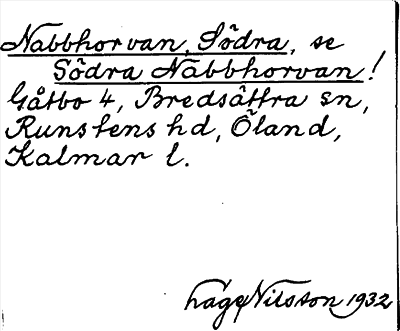 Nabbhorvan, Södra, se
Södra Nabbhorvan!
Gåtbo 4, Bredsättra sn,
Runstens hd, Öland,
Kalmar l.
Hage Nilsson 1932